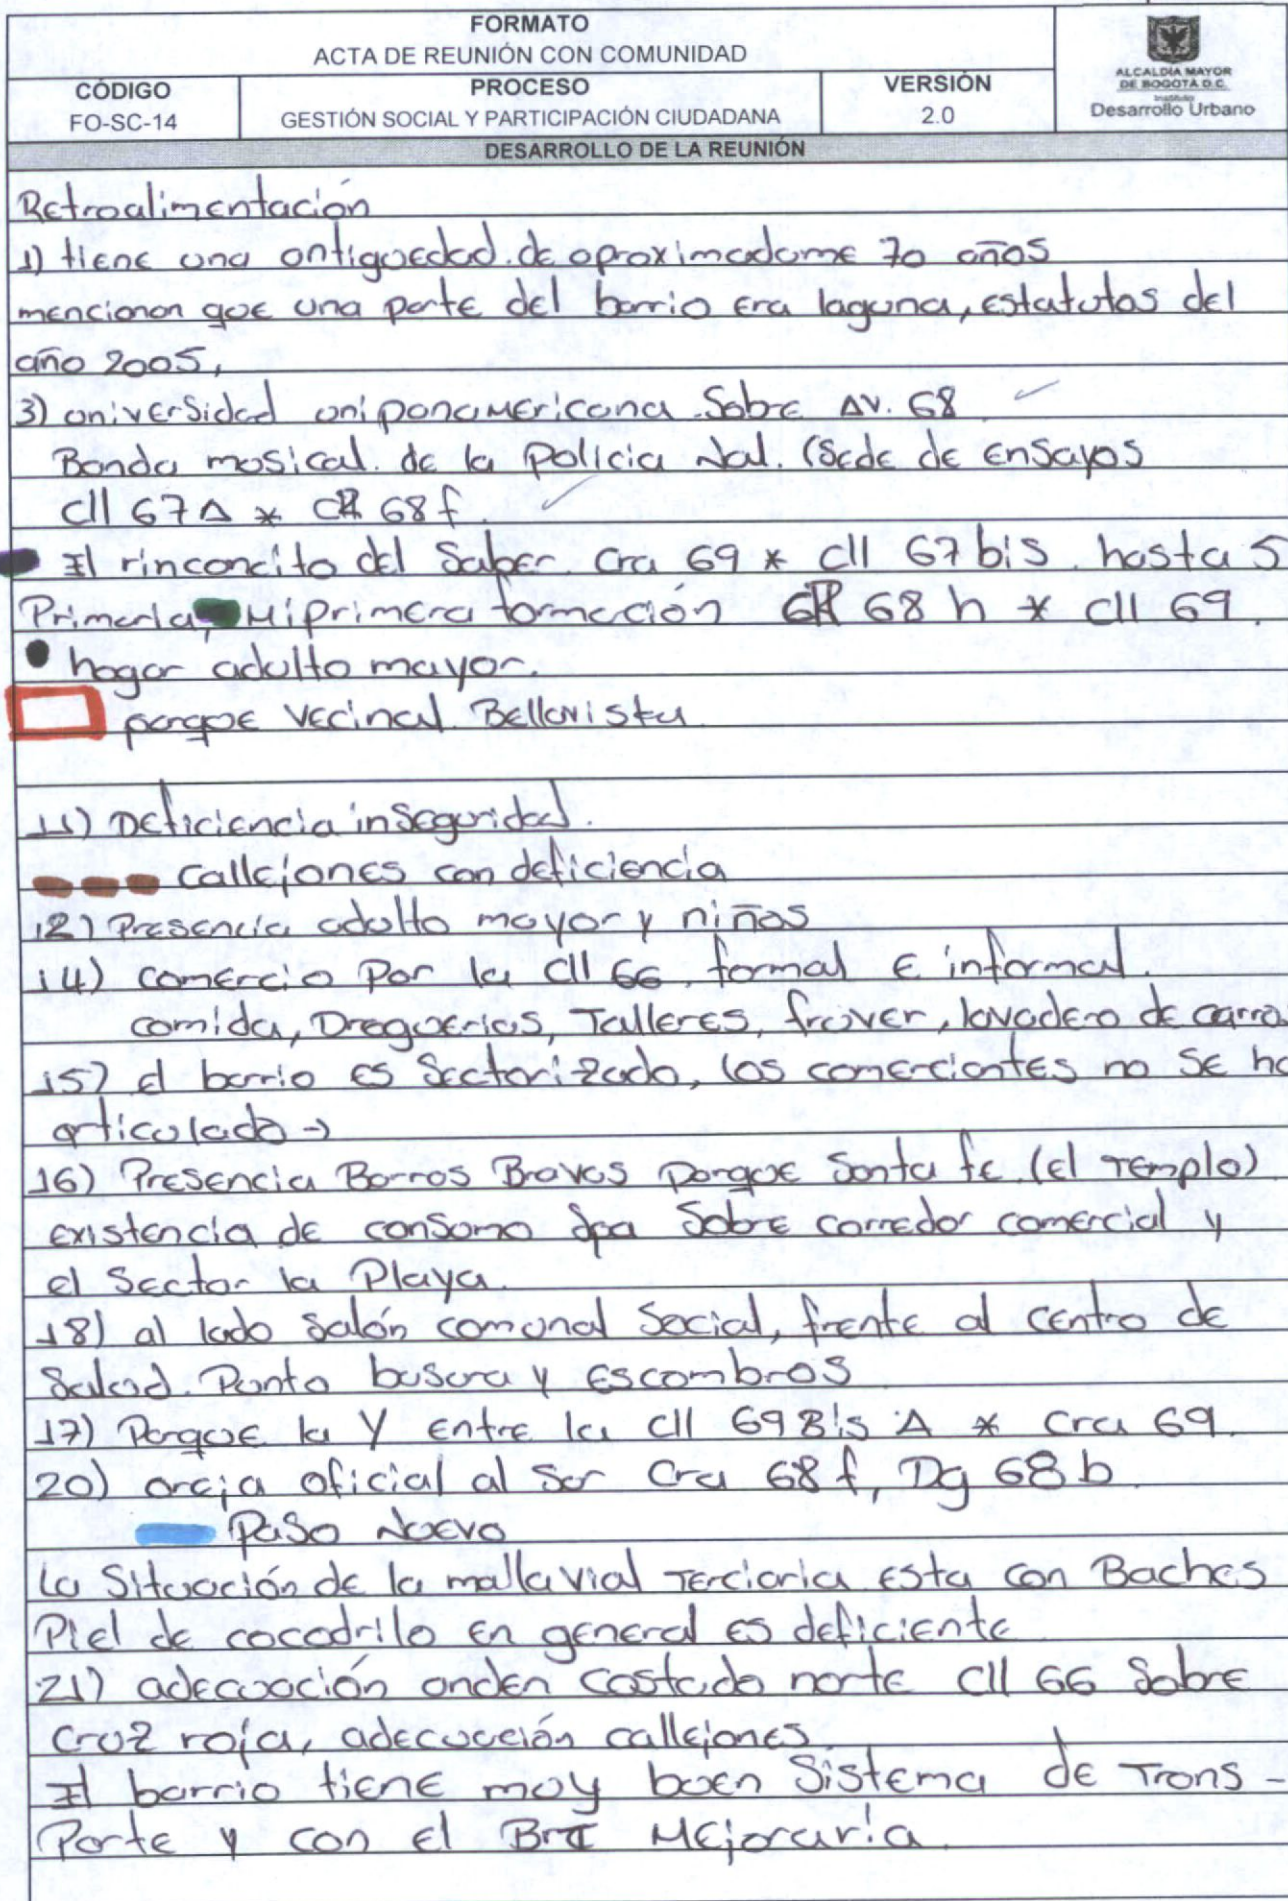 FORMATO
ACTA DE REUNIÓN CON COMUNIDAD
CÓDIGO
FO-SC-14
PROCESO
GESTIÓN SOCIAL Y PARTICIPACIÓN CIUDADANA
VERSIÓN
2.0
ALCALDÍA MAYOR
DE BOGOTÁ D.C.
Instituto
Desarrollo Urbano
DESARROLLO DE LA REUNIÓN
Retroalimentación
1) tiene una antiguedad. de aproximadame 70 años
mencionan que una parte del barrio era laguna, estatutos del
año 2005,
3) universidad unipanamericana Sobre AV. 68
Banda musical. de la Policia Nal. (Sede de Ensayos
Cll 67A * CR 68f.
El rinconcito del Saber Cra 69 * Cll 67 bis. hasta 5
Primaria, Mi primera formación CR 68 h * Cll 69.
hogar adulto mayor.
parque Vecinal Bellavista.
11) Deficiencia inseguridad.
callejones con deficiencia
12) Presencia adulto mayor y niños
14) comercio Por la Cll 66. formal e informal.
comida, Droguerias, Talleres, fruver, lavadero de carro
15) el barrio es Sectorizado, los comerciantes no Se ha
articulado →
16) Presencia Barras Bravas parque Santa fe. (el Templo)
existencia de consumo Spa Sobre corredor comercial y
el Sector la Playa.
18) al lado Salón comunal Social, frente al centro de
Salud. Punto basura y Escombros
17) Parque la Y Entre la Cll 69 Bis A * Cra 69.
20) oreja oficial al Sur Cra 68 f, Dg 68 b.
Paso Nuevo
La Situación de la malla vial Terciaria esta con Baches
Piel de cocodrilo en general es deficiente
21) adecuación anden Costado norte Cll 66 Sobre
Cruz roja, adecuación callejones.
El barrio tiene muy buen Sistema de Trans-
Porte y con el BRT Mejoraría.